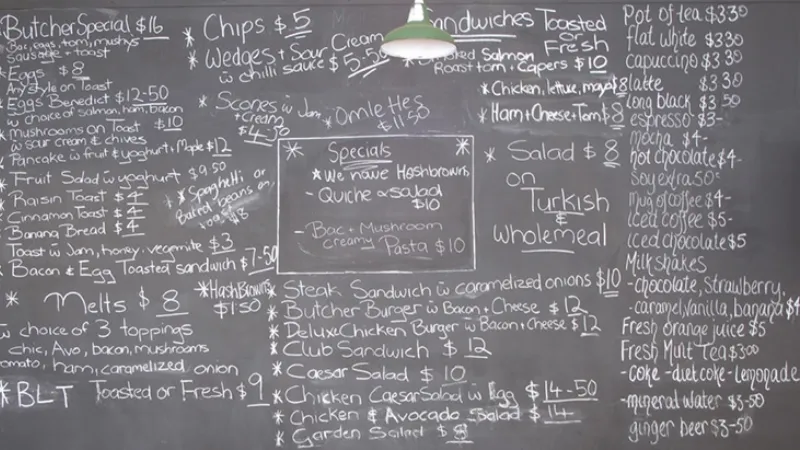 Butcher Special $16
Bac, eggs, tom, mushys
sausage + toast
Eggs $8
Any style on Toast
Eggs Benedict $12-50
w choice of salmon, ham, bacon
mushrooms on Toast $10
w sour cream & chives
Pancake w fruit & yoghurt, Maple $12
Fruit Salad w yoghurt $9 50
Raisin Toast $4
Cinnamon Toast $4
Banana Bread $4
Toast w Jam, honey, vegemite $3
* Bacon & Egg Toasted sandwich $7-50
* Melts $8
w choice of 3 toppings
chic, Avo, bacon, mushrooms
tomato, ham, caramelized onion
* BLT Toasted or Fresh $9
* Chips $5
* Wedges + Sour Cream
w chilli sauce $5-50
* Scones w Jam
+ Cream
$4-50
* Omlettes
$11 50
* Spaghetti or
Baked beans on
$8
* Hash Browns
$1 50
* Specials *
* We have Hashbrowns
- Quiche & salad
$10
- Bac + Mushroom
creamy Pasta $10
Sandwiches Toasted
or
Fresh
Smoked Salmon
Roast tom + Capers $10
* Chicken, lettuce, mayo $8
* Ham + Cheese + Tom $8
* Salad $8
on
Turkish
&
wholemeal
* Steak Sandwich w caramelized onions $10
* Butcher Burger w Bacon + Cheese $12
* Deluxe Chicken Burger w Bacon + Cheese $12
* Club Sandwich $12
* Caesar Salad $10
* Chicken Caesar Salad w Egg $14-50
* Chicken & Avocado Salad $14
* Garden Salad $8
Pot of tea $3 30
flat white $3 30
capuccino $3 30
latte $3 30
long black $3 50
espresso $3-
mocha $4-
hot chocolate $4-
Soy extra 50c
mug of coffee $4-
iced coffee $5-
iced chocolate $5
Milkshakes
- chocolate, strawberry,
- caramel, vanilla, banana $4
Fresh orange juice $5
Fresh Mint Tea $3 00
- coke - diet coke - lemonade
- mineral water $3-50
ginger beer $3-50